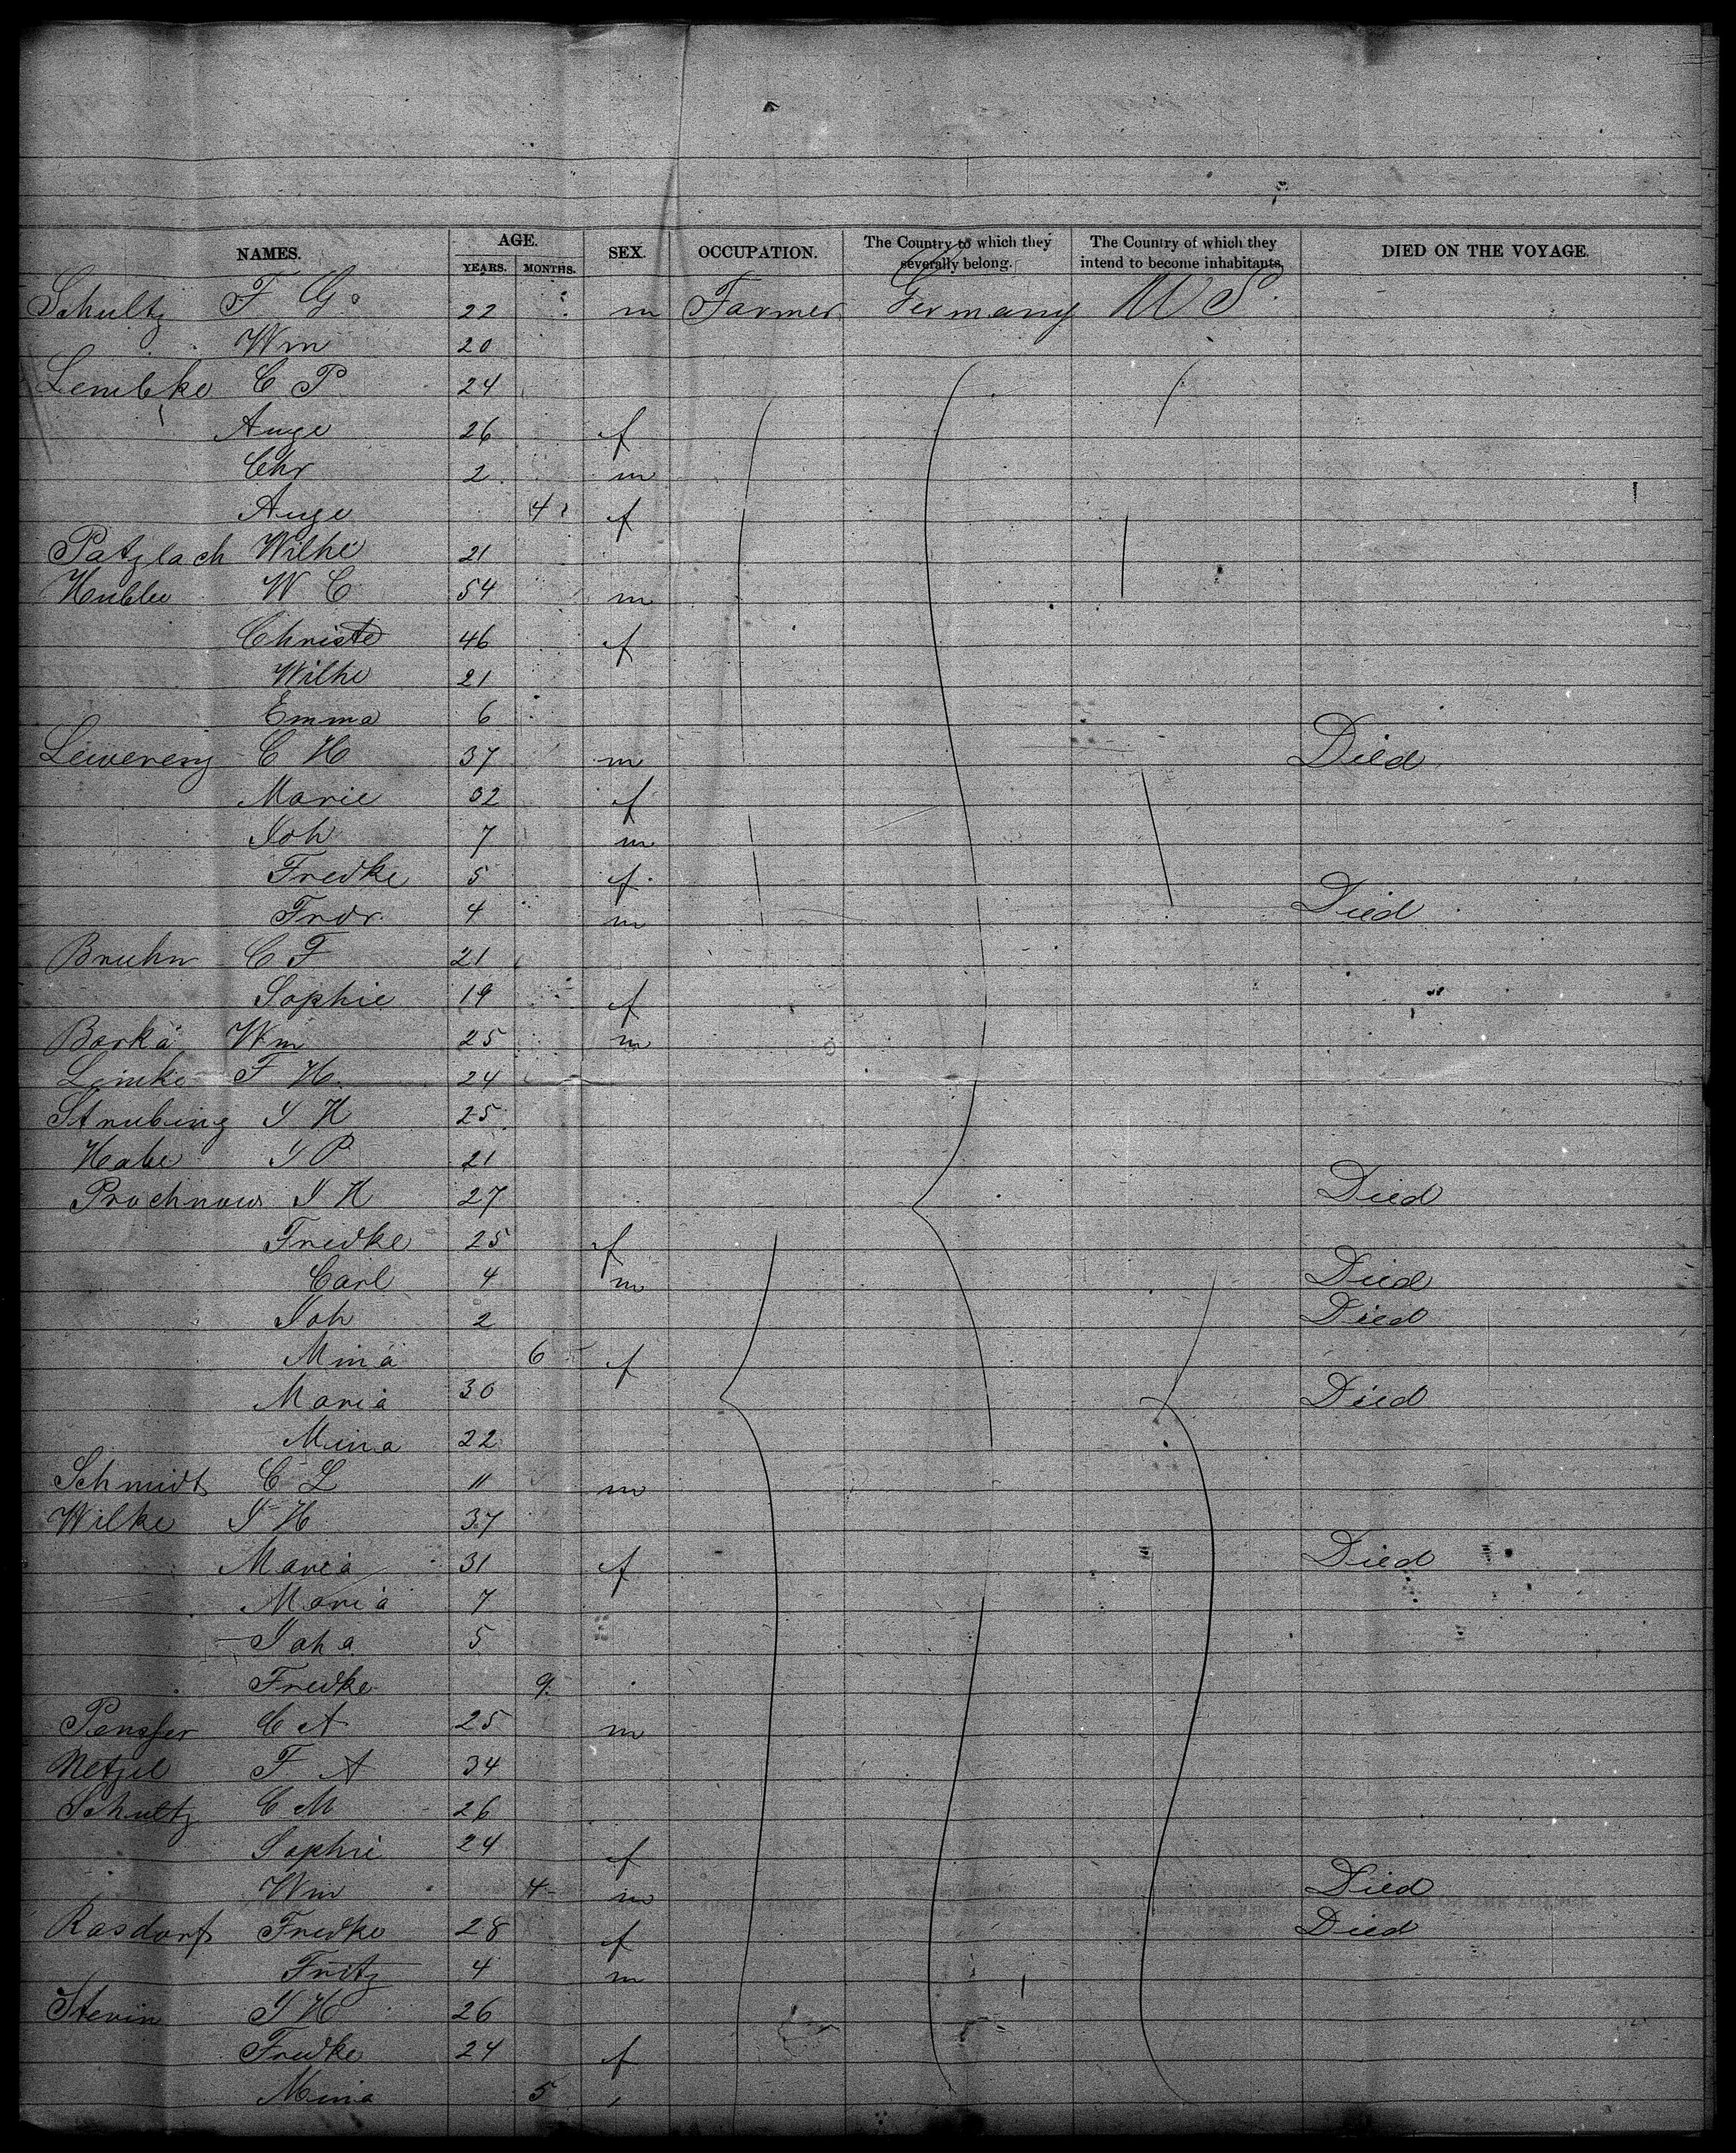 NAMES. AGE. SEX. OCCUPATION. The Country to which they severally belong. The Country of which they intend to become inhabitants. DIED ON THE VOYAGE.
YEARS. MONTHS.
Schultz F G. 22 m Farmer Germany U S.
Wm 20
Lembke C P 24
Auge 26 f
Chr 2 m
Auge 4 f
Patzlach Wilhe 21
W C 54 m
Christe 46 f
Wilhe 21
Emma 6
C H 37 m Died
Marie 32 f
Joh 7 m
Fredke 5 f
Frdr. 4 m Died
Bruhn C F 21
Sophie 19 f
Borka Wm 25 m
Lemke F H. 24
Strubing J H 25
J P 21
Prochnow J H 27 Died
Fredke 25 f
Carl 4 m Died
Joh 2 Died
Mina 6 f
Maria 30 Died
Mina 22
Schmidt C L 11 m
Wilke J H 37
Maria 31 f Died
Maria 7
Joha 5
Fredke 9
C A 25 m
Netzel F A 34
Schultz C M 26
Sophie 24 f
Wm 4 m Died
Rasdorf Fredke 28 f Died
Fritz 4 m
J H 26
Fredke 24 f
Mina 5 "